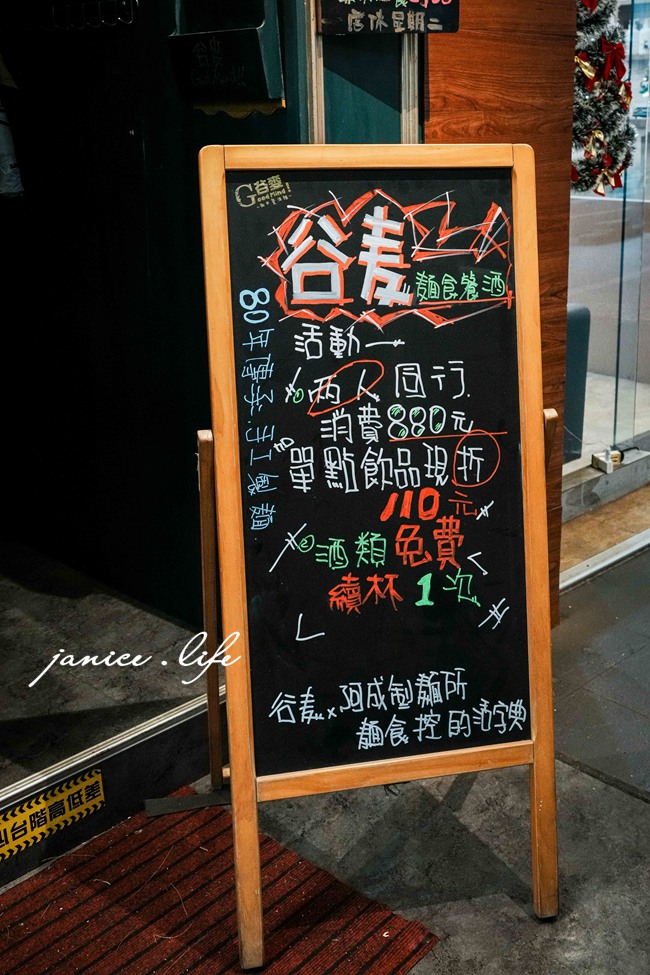 店休星期二
谷麦
Good Mind!
谷麥
Good Mind!
谷麦
麵食餐酒
80年傳承.手工製麵
活動一
① 兩人同行.
消費880元
單點飲品現折
110元
② 酒類免費
續杯1次
janice.life
谷麦x阿成製麵所
麵食控的活字典
心台階高低差